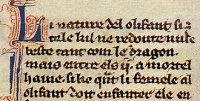 Li nature del olifant si est
tele kil ne redoute nule
beste tant com le dragon
mais entre els ij. a mortel
haine si ke qnt li femele al
olifant doit enfanter ele en